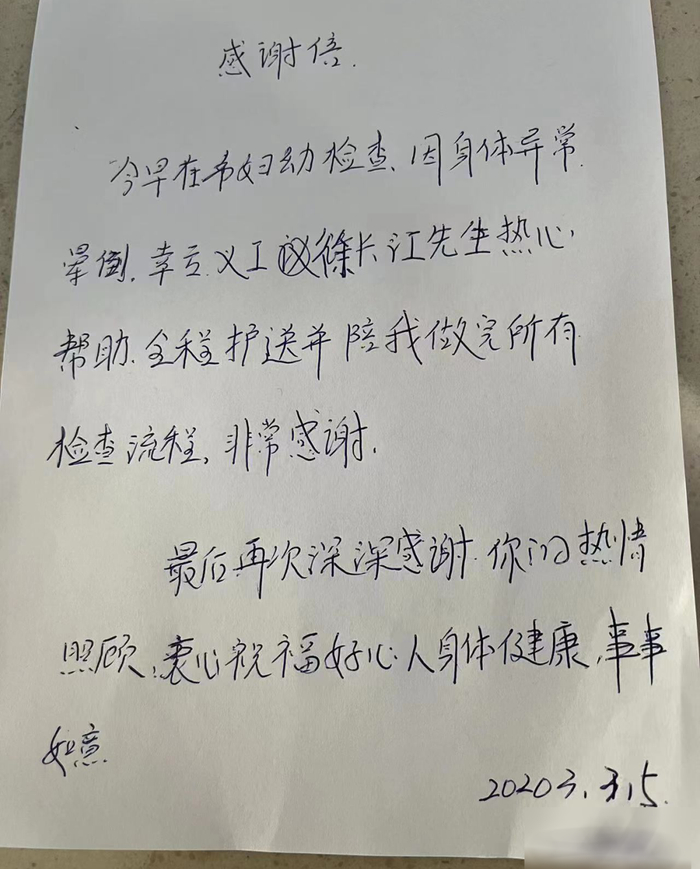 感谢信.
今早在市妇幼检查、因身体异常
晕倒,幸亏义工徐长江先生热心
帮助.全程护送并陪我做完所有
检查流程,非常感谢.
最后再次深深感谢.你的热情
照顾,衷心祝福好心人身体健康,事事
如意.
20203.3.5.